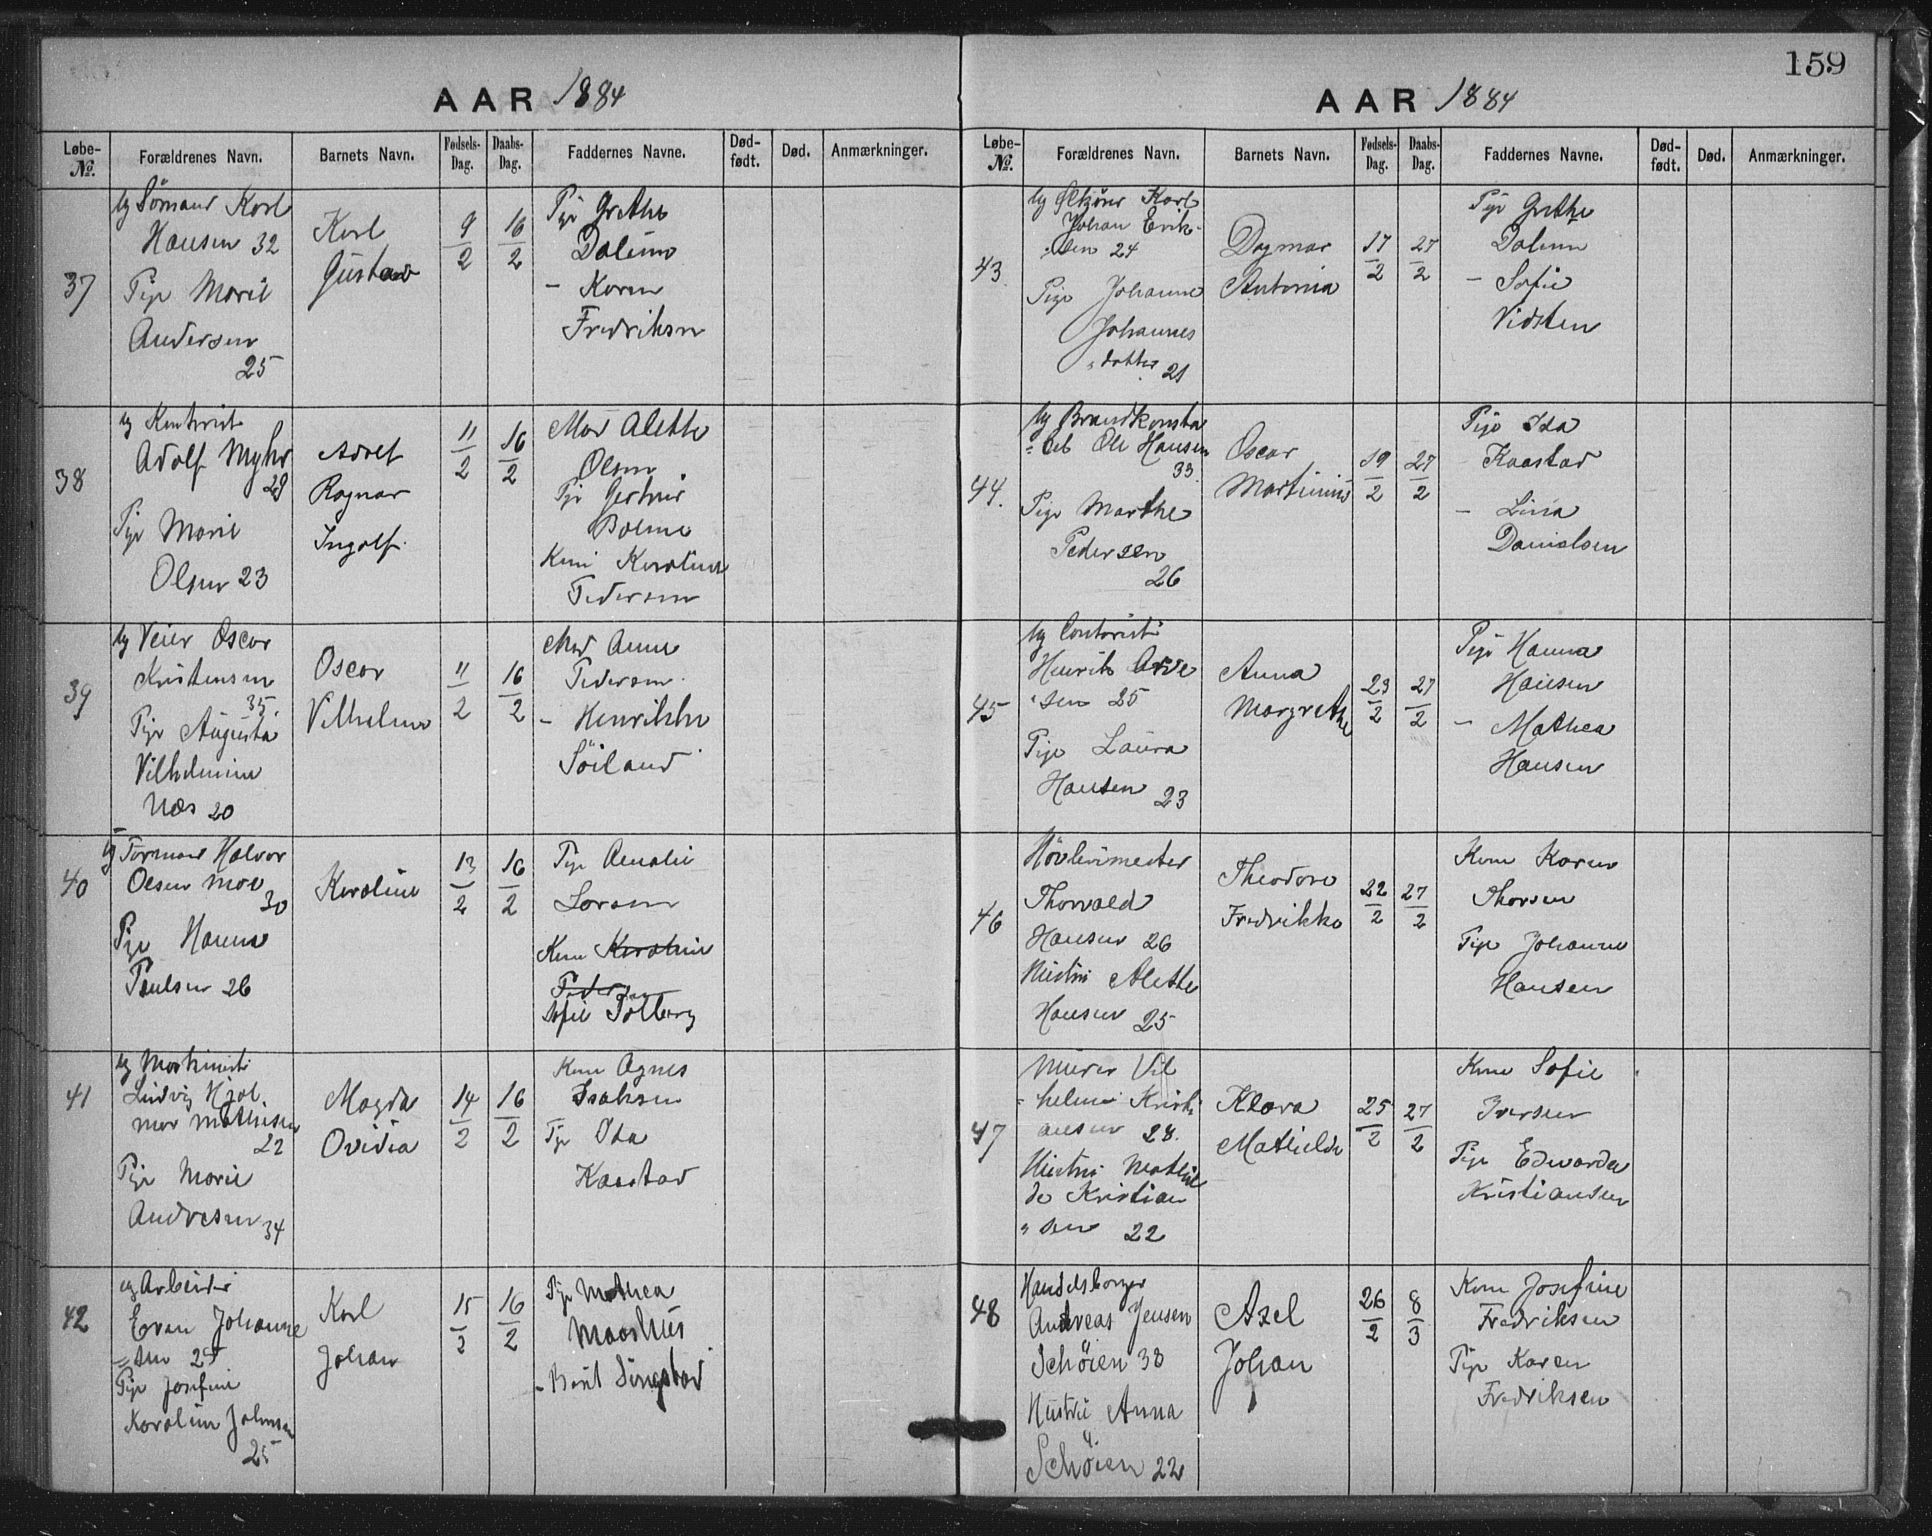 159
AAR 1884
Løbe-No.
Forældrenes Navn.
Barnets Navn.
Fødsels-Dag.
Daabs-Dag.
Faddernes Navne.
Død-født.
Død.
Anmærkninger.
37
Ug Sömand Karl
Hansen 32
Pige Marie
Andersen
25
Karl
Gustav
9/2
16/2
Pige Grethe
Dalimo
- Karen
Fredriksen
38
Ug Kontorist
Adolf Myhr
29
Pige Marie
Olsen 23
Adolf
Ragnar
Ingolf
11/2
16/2
Mad Alette
Olsen
Pige
Bolme
Kone Karoline
Pedersen
39
Ug Veier Oscar
Kristensen
35
Pige Augusta
Vilhelmine
Næs 20
Oscar
Vilhelm
11/2
16/2
Mad Anne
Pedersen
- Henrikke
Söiland
40
Ug Formand Halvor
Olsen Moe
30
Pige Hanna
Paulsen 26
Karoline
13/2
16/2
Pige Amalie
Lorsen
Kone Karoline
Pedersen
Sofie Solberg
41
Ug Maskinist
Ludvig Hjal
mar Mathisen
22
Pige Marie
Andresen 34
Magda
Ovidia
14/2
16/2
Kone Agnes
Isaksen
Pige Ida
Kaastad
42
Ug Arbeider
Even Johanne
= sen 25
Pige Josefine
Karoline Johnsen
25
Karl
Johan
15/2
16/2
Pige Mathea
Maashus
- Berit Singstad
AAR 1884
Løbe-No.
Forældrenes Navn.
Barnets Navn.
Fødsels-Dag.
Daabs-Dag.
Faddernes Navne.
Død-født.
Død.
Anmærkninger.
43
Ug Karl
Johan Erik-
sen 24
Pige Johanne
Johannes
datter 21
Dagmar
Antonia
17/2
27/2
Pige Grethe
Dalimo
- Sofie
Vidsten
44.
Ug Brandkonsta
= bel Ole Hansen
33
Pige Marthe
Pedersen
26
Oscar
Martinius
19/2
27/2
Pige Ida
Kaastad
- Lina
Danielsen
45
Ug Contorist
Henrik Arve
sen 25
Pige Laura
Hansen 23
Anna
Margrethe
23/2
27/2
Pige Hanna
Hansen
- Mathea
Hansen
46
Høvlerimester
Thorvald
Hansen 26
Hustru Alette
Hansen 25
Theodore
Fredrikke
22/2
27/2
Kone Karen
Thorsen
Pige Johanne
Hansen
47
Murer Vil
= helm Kristi
ansen 28.
Hustru Mathil
de Kristian
" sen 22
Klara
Mathilde
25/2
27/2
Kone Sofie
Iversen
Pige Edvarda
Kristiansen
48
Handelsborger
Andreas Jensen
Schøien 38
Hustru Anna
Schøien 22
Axel
Johan
26/2
8/3
Kone Josefine
Fredriksen
Pige Karen
Fredriksen